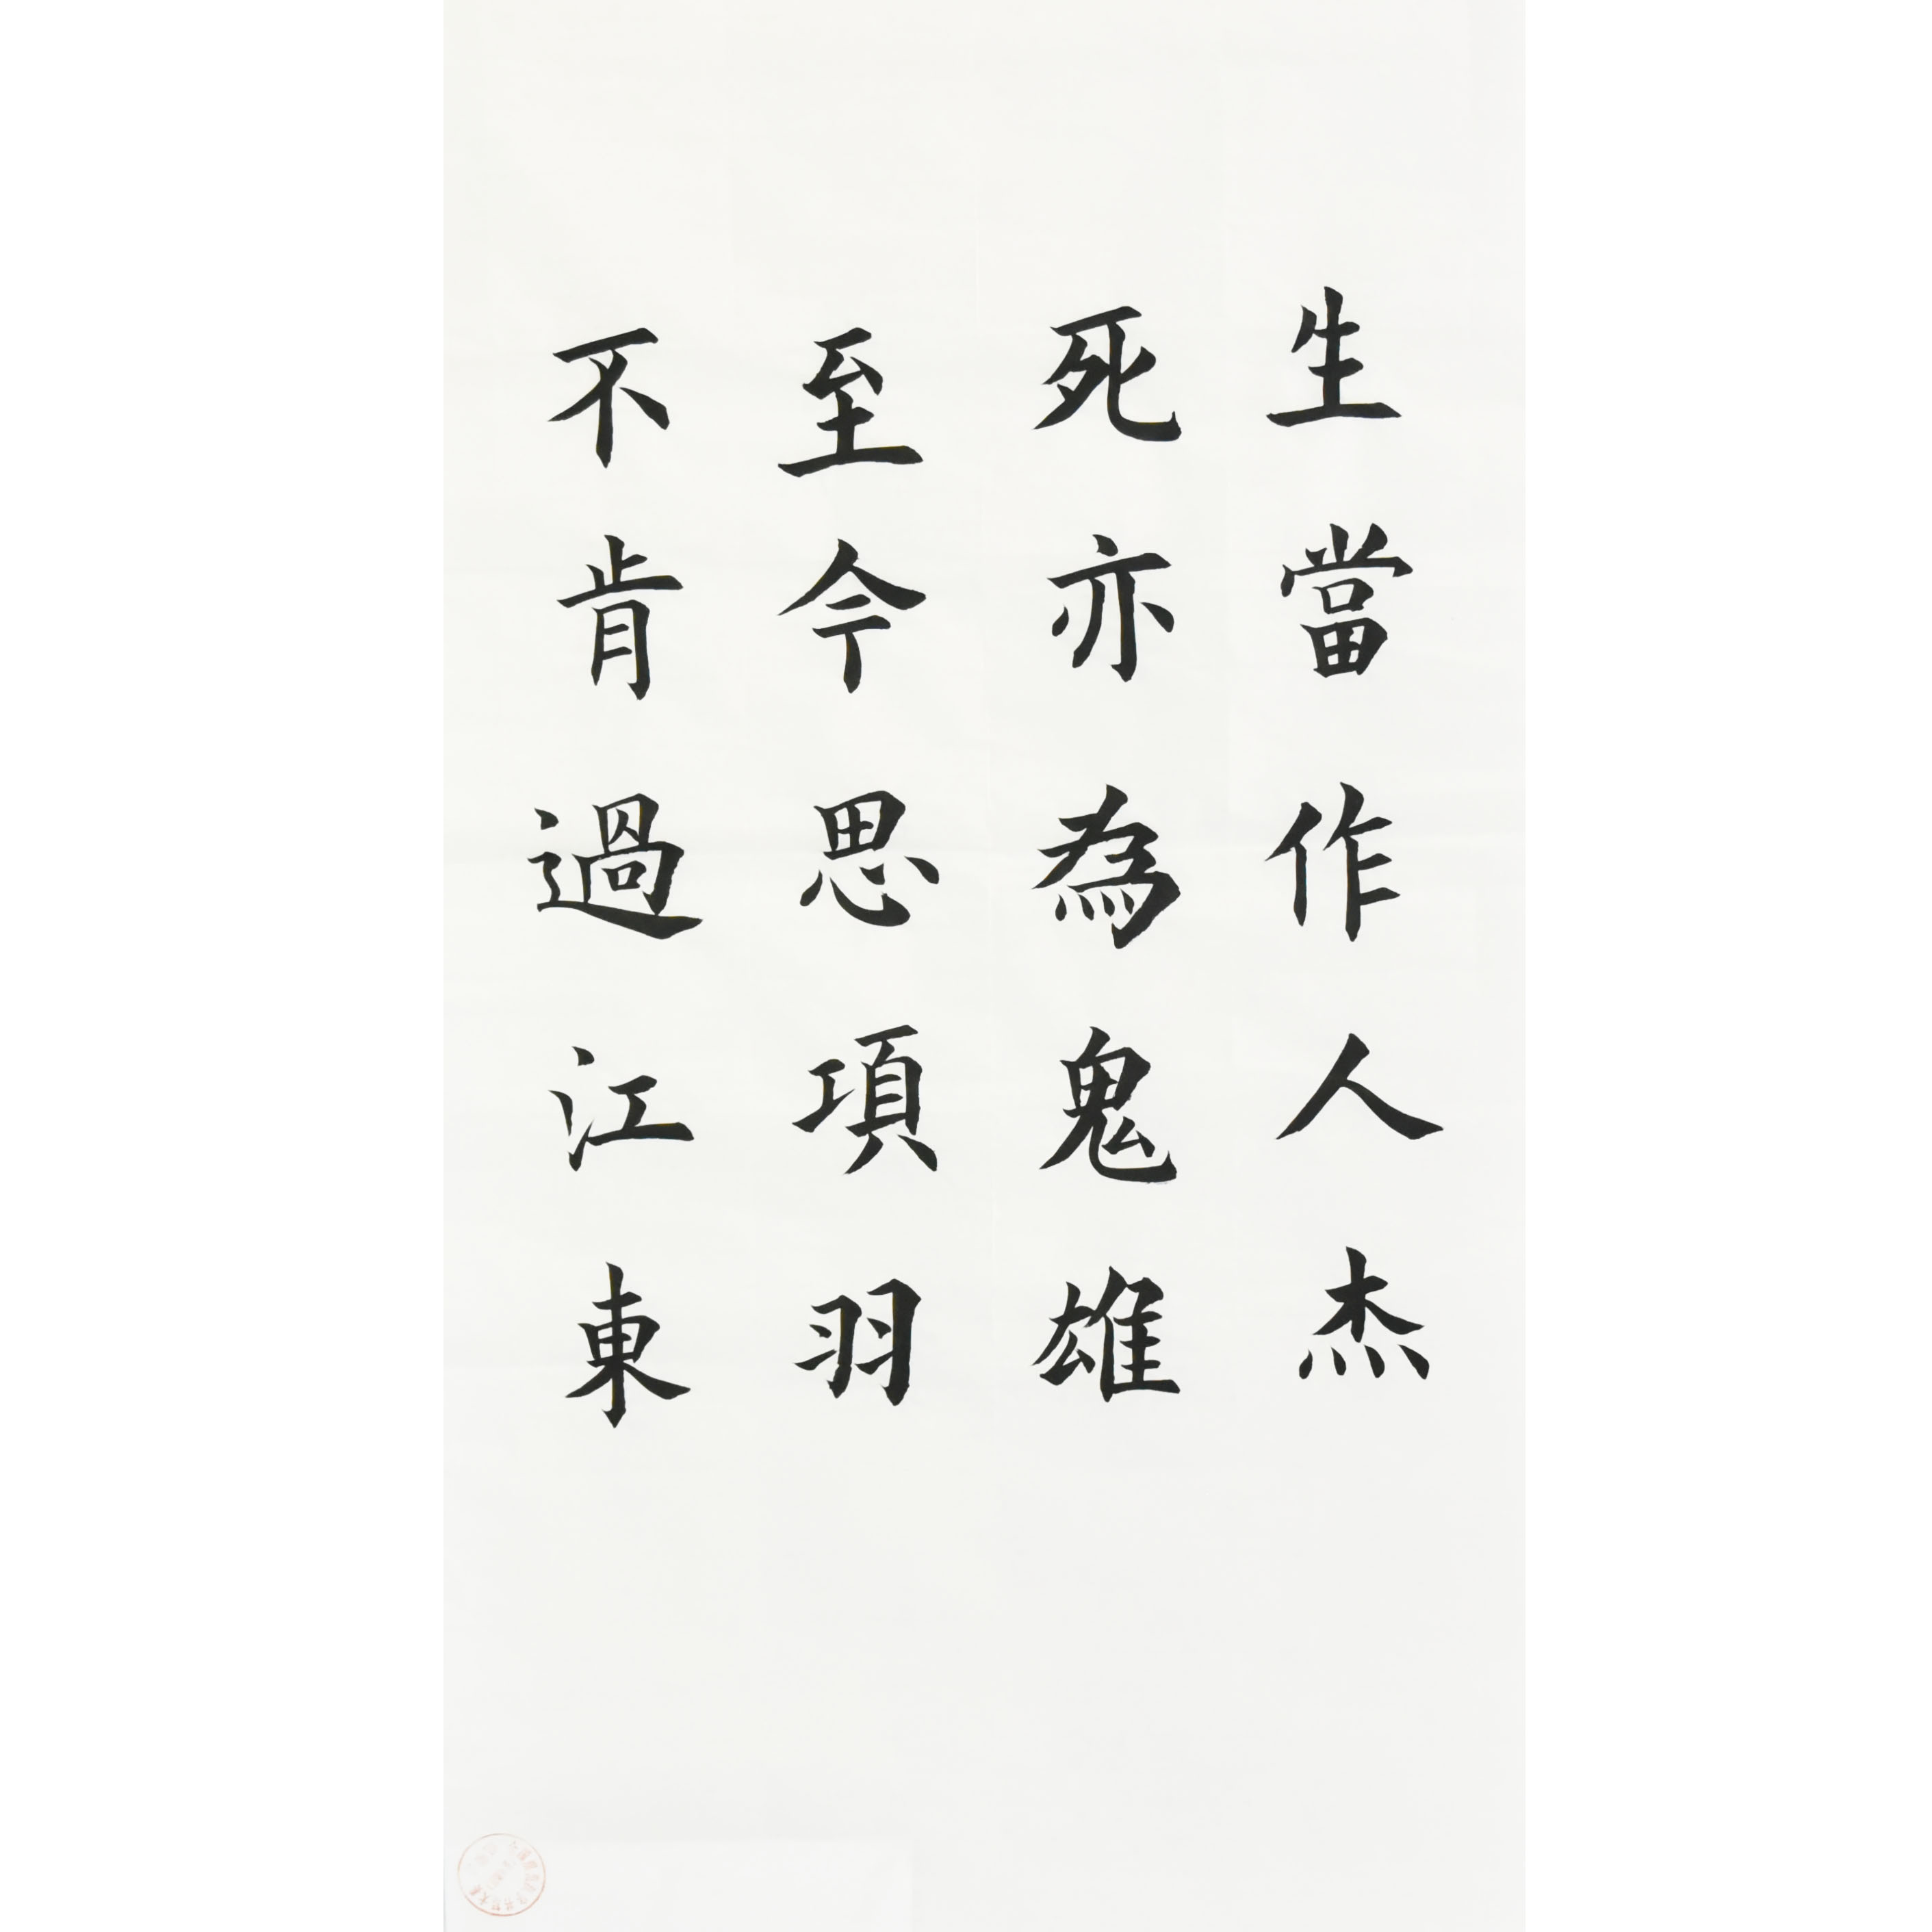 生當作人杰
死亦為鬼雄
至今思項羽
不肯過江東